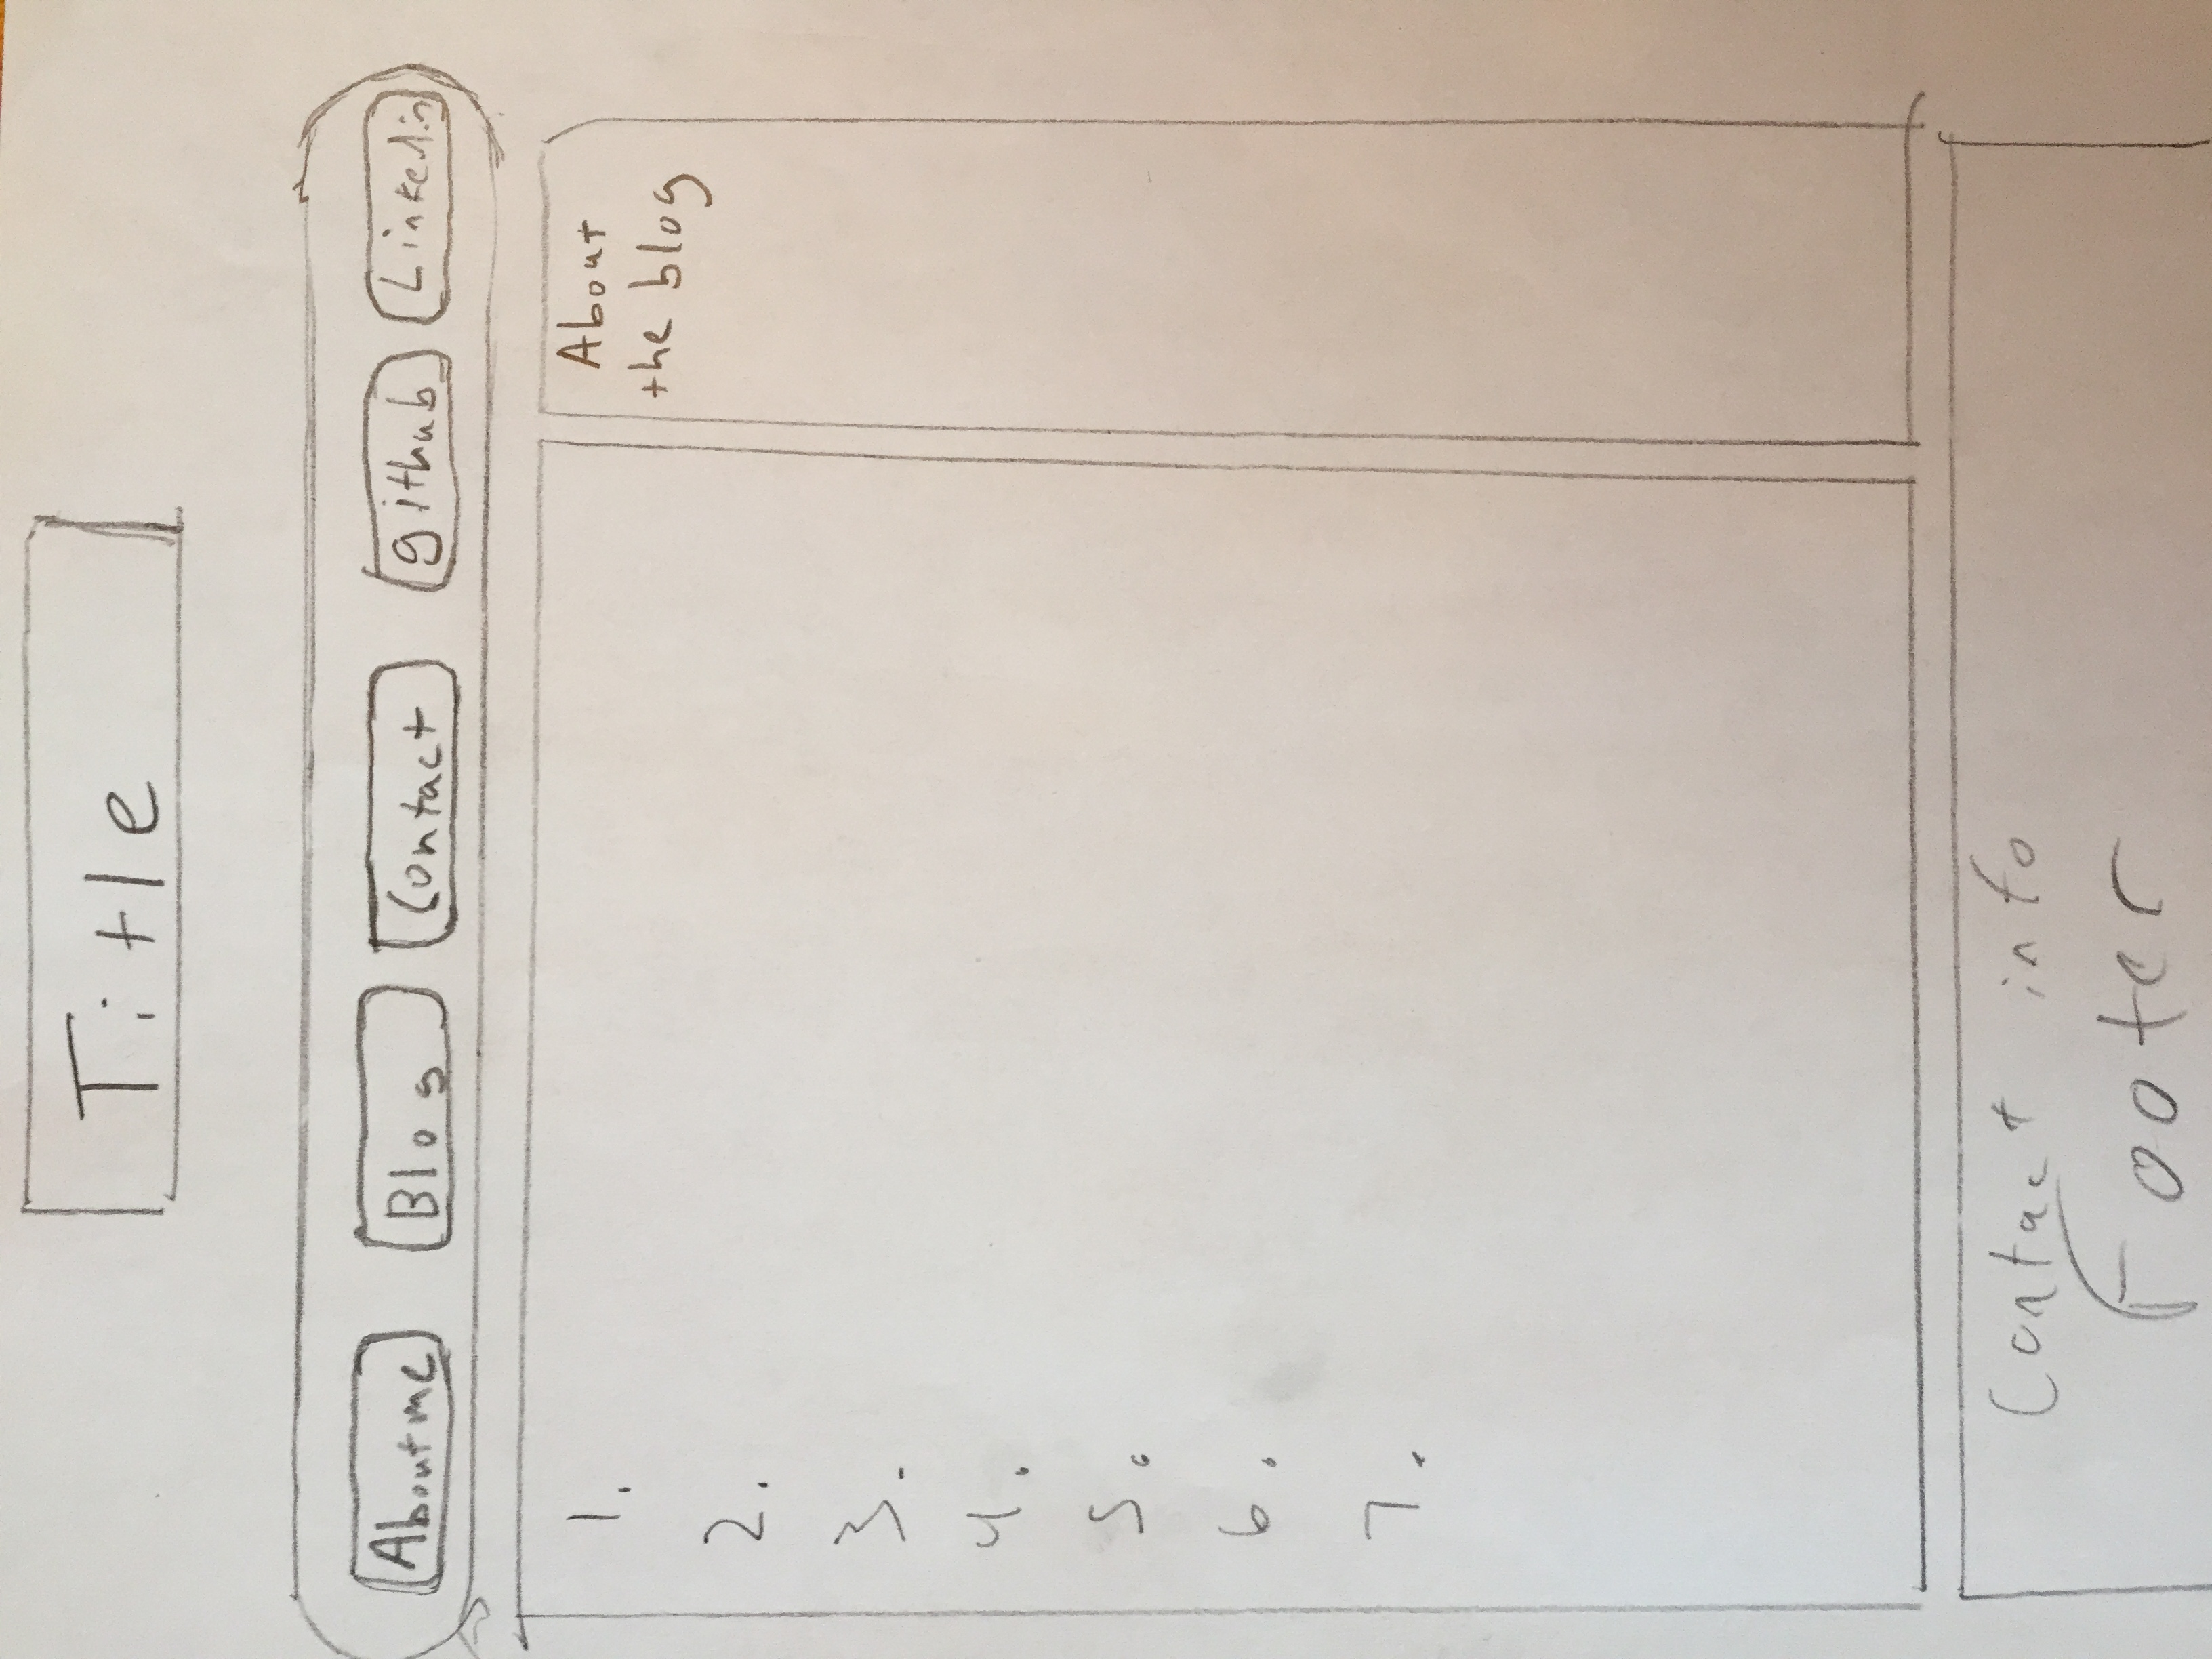 Title
About me Blog Contact github Linkedin
1.
About
the blog
2.
3.
4.
5.
6.
7.
Contact info
Footer